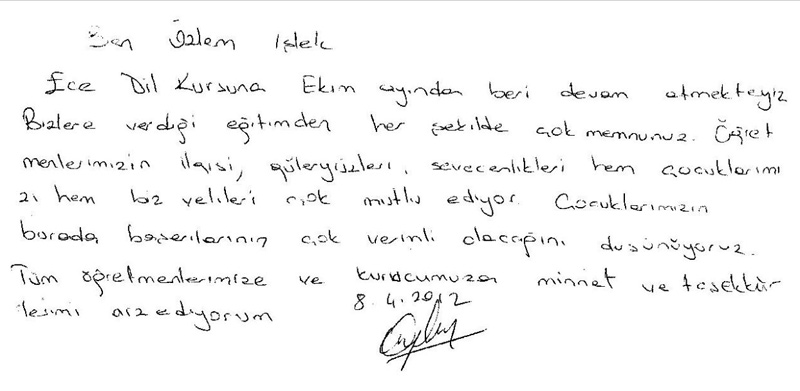 Ben Özlem Işlek
Ece Dil Kursuna Ekim ayından beri devam etmekteyiz
Bizlere verdiği eğitimden her şekilde çok memnunuz. Öğret
menlerimizin ilgisi, güleryüzleri, sevecenlikleri hem çocuklarımı
zı hem biz velileri çok mutlu ediyor. Çocuklarımızın
burada başarılarının çok verimli olacağını düşünüyoruz.
Tüm öğretmenlerimize ve kurucumuza minnet ve teşekkür
lerimi arzediyorum 8.4.2012